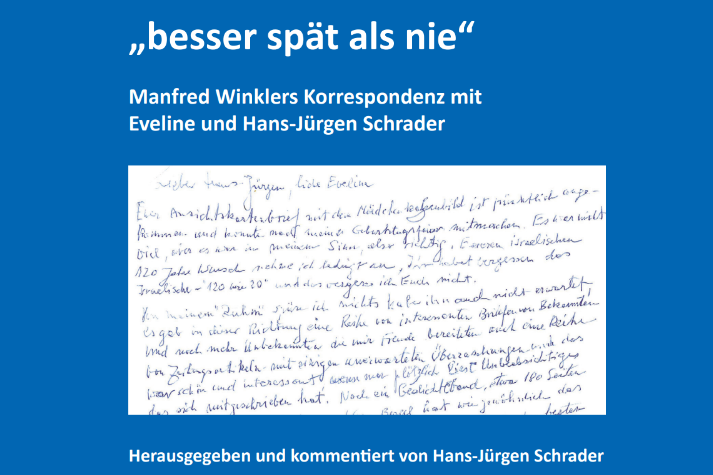 „besser spät als nie“
Manfred Winklers Korrespondenz mit
Eveline und Hans-Jürgen Schrader
Lieber Hans-Jürgen, liebe Eveline
Euer Ansichtskartenbrief mit dem ist pünktlich ange-
kommen und konnte noch meine Geburtstagsfeier mitmachen. Es war nicht
viel, aber es war in meinem Sinn, also richtig, Eueren israelischen
120 Jahre Wunsch nehme ich an, Ihr habt vergessen das
Israelische - "120 wie 20" und das vergesse ich Euch nicht.
Von meinem "Ruhm" spüre ich nichts habe ihn auch nicht erwartet,
es gab in dieser Richtung eine Reihe von interessanten Briefen von Bekannten
und noch mehr Unbekannten die mir Freude bereiteten auch eine Reihe
von Zeitungsartikeln mit einigen unerwarteten Überraschungen und das
war schön und interessant, wenn man plötzlich liest Unbeabsichtigtes
das sich mitgeschrieben hat. Noch ein Gedichtband, etwa 180 Seiten
hat wie gewöhnlich das
besten
Herausgegeben und kommentiert von Hans-Jürgen Schrader